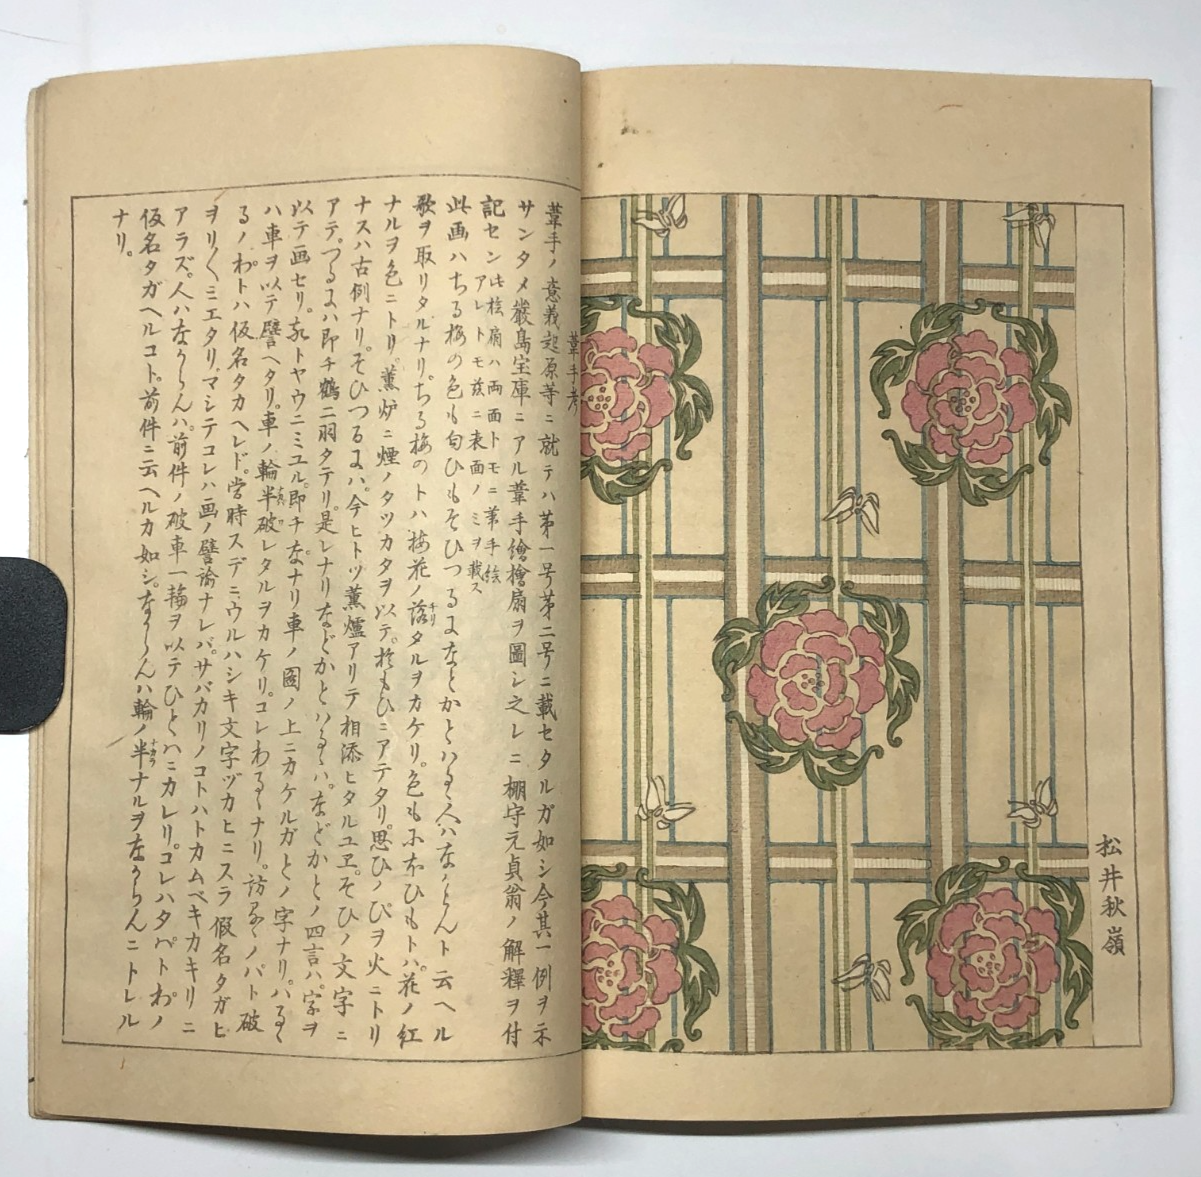 松井秋嶺
葦手考
葦手ノ意義起原等ニ就テハ第一号第二号ニ載セタルガ如シ今其一例ヲ示
サンタメ厳島宝庫ニアル葦手繪檜扇ヲ圖シ之レニ棚守元貞翁ノ解釋ヲ付
記セン此桧扇ハ両面トモニ葦手絵
アレトモ茲ニ表面ノミヲ載ス
此画ハちる梅の色も匂ひもそひつるよなどかとハるゝ人ハなからんト云ヘル
歌ヲ取リタルナリ。ちる梅のトハ梅花ノ落タルヲカケリ。色もにほひもトハ。花ノ紅
チリ
ナルヲ色ニトリ。薫炉ニ煙ノタツカタヲ以テ。於もひニアテタリ。思ひノぴヲ火ニトリ
ナスハ古例ナリ。そひつるよハ。今ヒトツ薫爐アリテ相添ヒタルユヱ。そひノ文字ニ
アテ。つるよハ即チ鶴二羽タテリ。是レナリなどかとハるゝハ。などかとノ四言ハ。字ヲ
以テ画セリ。トヤウニミユル。即チなナリ車ノ圖ノ上ニカケルガとノ字ナリ。ハるゝ
ハ車ヲ以テ譬ヘタリ。車ノ輪半破レタルヲカケリ。コレわるゝナリ。訪るゝノハト破
るノわトハ仮名タカヘレド。当時スデニ。ウルハシキ文字ヅカヒニスラ假名タガヒ
ヲリ〱ミエタリ。マシテコレハ画ノ譬諭ナレバ。サバカリノコトハトカムベキカキリニ
アラズ。人ハなからんハ。前件ノ破車一輪ヲ以テひとハニカレリ。コレハタハトわノ
仮名タガヘルコト。前件ニ云ヘルカ如シ。なからんハ輪ノ半ナルヲなからんニトレル
ナカラ
ナリ。